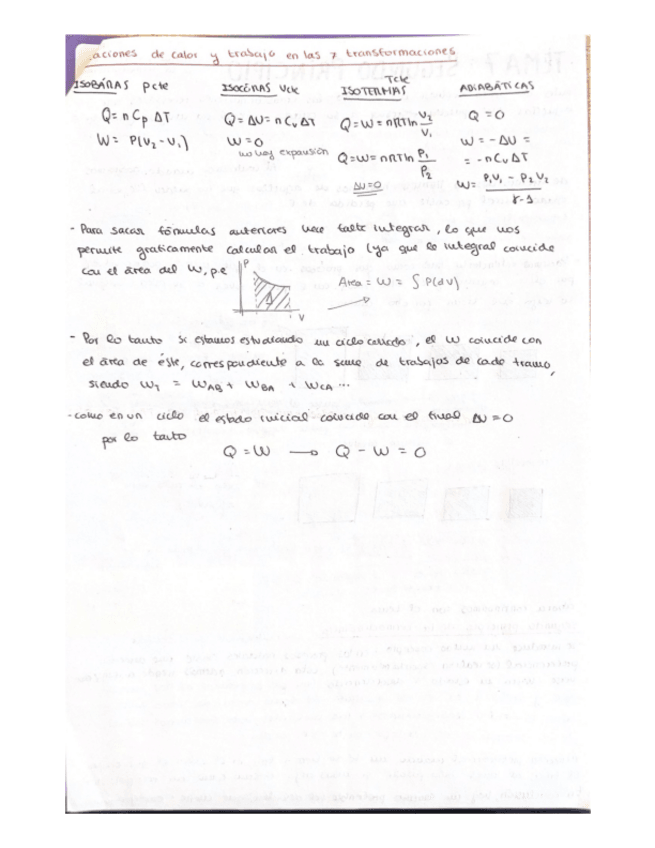 aciones de calor y trabajo en las transformaciones
ISOBÁRAS Pcte
Q = n Cp ΔT
W = P(V2 - V1)
ISOCÓRAS Vcte
Q = ΔU = n Cv ΔT
W = 0
no hay expansión
Tcte
ISOTERMAS
Q = W = nRT ln V2/V1
Q = W = nRT ln P1/P2
ΔU = 0
ADIABÁTICAS
Q = 0
W = -ΔU =
= -n Cv ΔT
W = P1V1 - P2V2 / γ-1
- Para sacar fórmulas anteriores hace falta integrar, lo que nos
permite graficamente calcular el trabajo (ya que la integral coincide
con el área del W, p.e
P
V
Area = W = ∫ P(dV)
- Por lo tanto si estamos estudiando un ciclo cerrado, el W coincide con
el área de éste, correspondiente a la suma de trabajos de cada tramo,
siendo WT = WAB + WBA + WCA ...
- como en un ciclo el estado inicial coincide con el final ΔU = 0
por lo tanto
Q = W → Q - W = 0